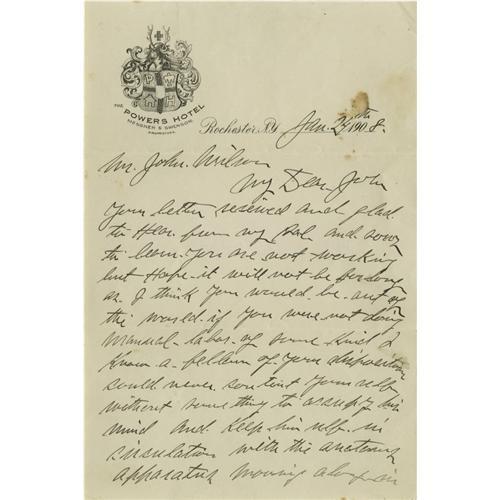 THE
POWERS HOTEL
MESSNER & SWENSON
PROPRIETORS
Rochester, N.Y. Jan. 29th 1908.
Mr. John. Wilson
My Dear John
Your letter received and glad
to Hear from my Pal and sorry
to learn. You are not working
but Hope it will not be for long
as. I think you would be. out of
the world if you were not doing
Manual-labor. of some kind. I
Know a-fellow of your disposition
could never content yourself
without something to occupy his
mind and Keep him self. in
circulation with the anatomy
apparatus moving along in